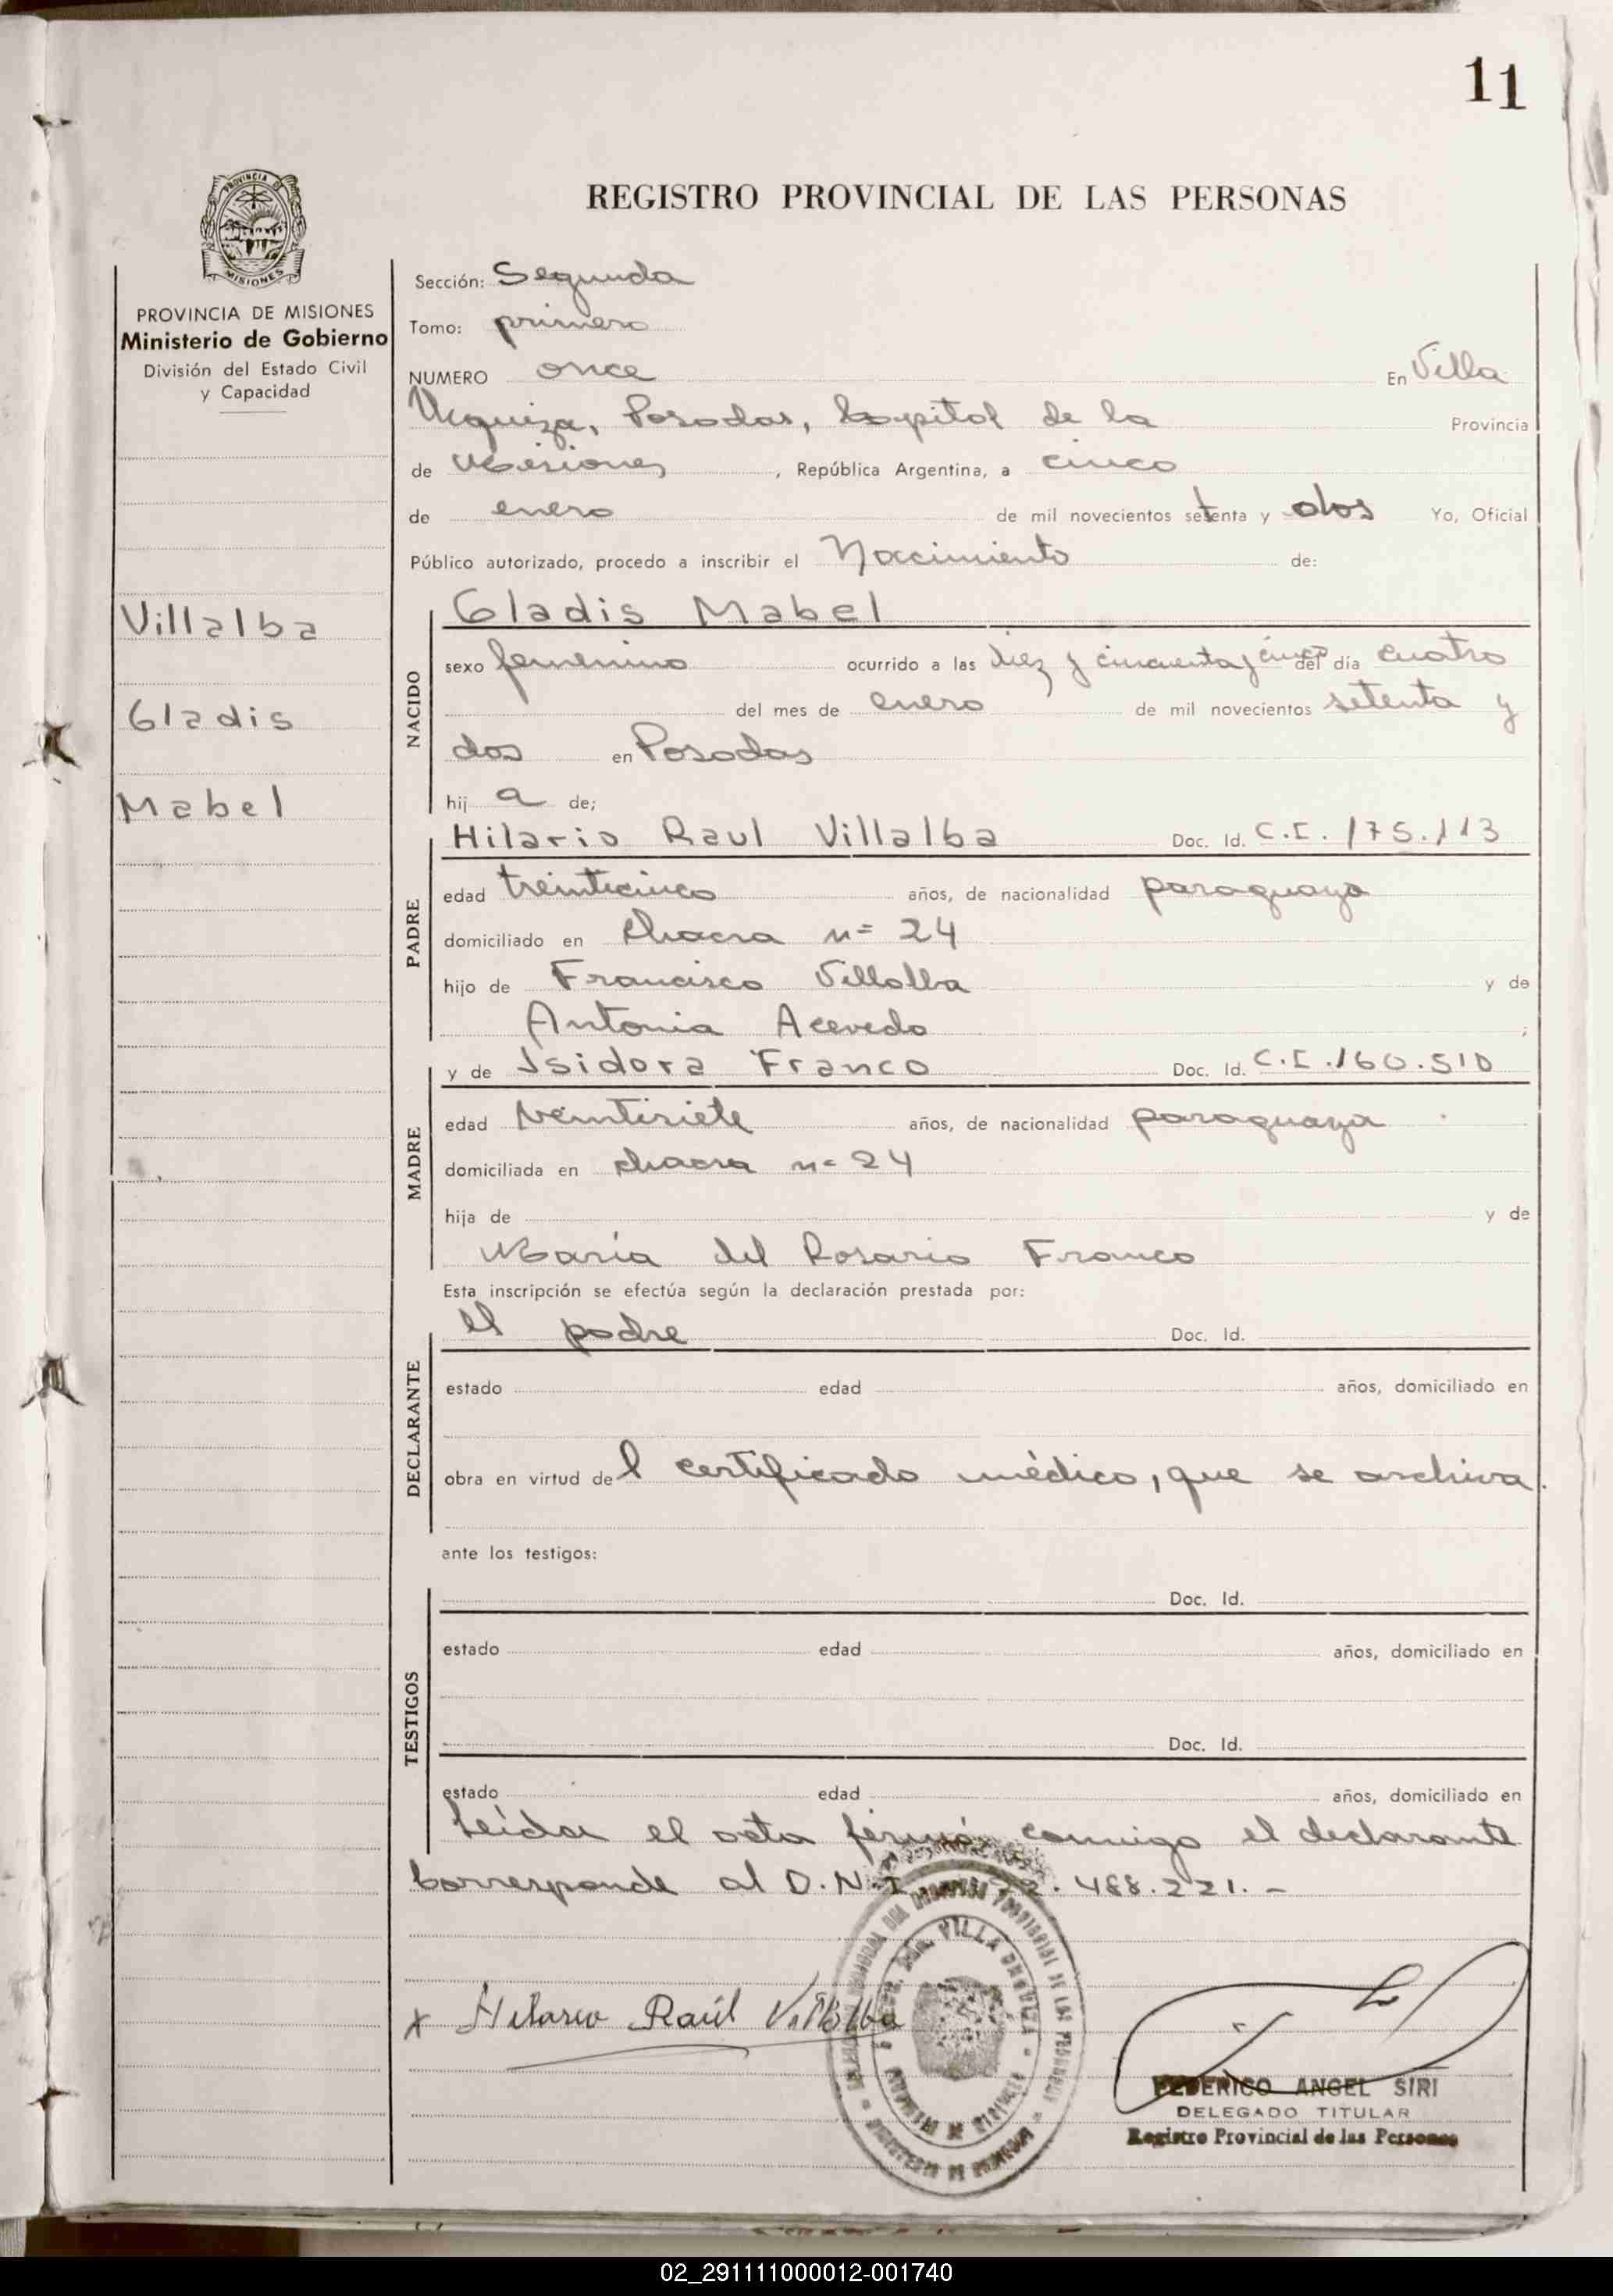 11
PROVINCIA DE
MISIONES
REGISTRO PROVINCIAL DE LAS PERSONAS
PROVINCIA DE MISIONES
Ministerio de Gobierno
División del Estado Civil
y Capacidad
Villalba
Gladis
Mabel
Sección: Segunda
Tomo: primero
NUMERO once En Villa
Urquiza, Posadas, Capital de la Provincia
de Misiones, República Argentina, a cinco
de enero de mil novecientos setenta y dos Yo, Oficial
Público autorizado, procedo a inscribir el Nacimiento de:
NACIDO
Gladis Mabel
sexo femenino ocurrido a las diez y cincuenta y cinco del día cuatro
del mes de enero de mil novecientos setenta y
dos en Posadas
hij a de;
PADRE
Hilario Raul Villalba Doc. Id. C.I. 175.113
edad treinticinco años, de nacionalidad paraguaya
domiciliado en chacra n= 24
hijo de Francisco Villalba y de
Antonia Acevedo ;
MADRE
y de Isidora Franco Doc. Id. C.I. 160.510
edad veintisiete años, de nacionalidad paraguaya
domiciliada en chacra n= 24
hija de y de
María del Rosario Franco
Esta inscripción se efectúa según la declaración prestada por:
DECLARANTE
el padre Doc. Id.
estado edad años, domiciliado en
obra en virtud del certificado médico, que se archiva.
ante los testigos:
TESTIGOS
Doc. Id.
estado edad años, domiciliado en
Doc. Id.
estado edad años, domiciliado en
Leída el acta firmó conmigo el declarante
Corresponde al D.N.I. 22.488.221.-
x Hilario Raúl Villalba
VILLA URQUIZA
FEDERICO ANGEL SIRI
DELEGADO TITULAR
Registro Provincial de las Personas
02_291111000012-001740